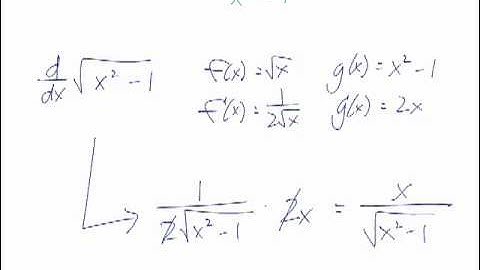 d/dx √(x² − 1)   f(x) = √x   g(x) = x² − 1
f'(x) = 1/(2√x)   g'(x) = 2x
1/(2√(x² − 1)) · 2x = x/√(x² − 1)